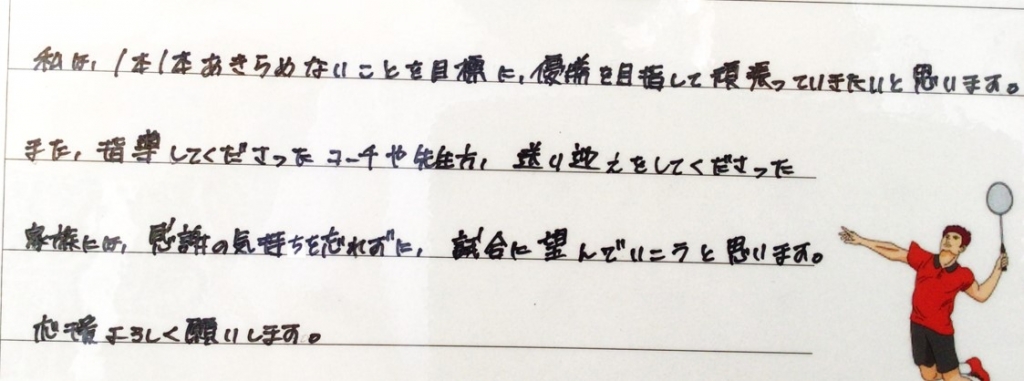 私は、1本1本あきらめないことを目標に、優勝を目指して頑張っていきたいと思います。
また、指導してくださったコーチや先生方、送り迎えをしてくださった
家族には、感謝の気持ちを忘れずに、試合に望んでいこうと思います。
応援よろしく願いします。